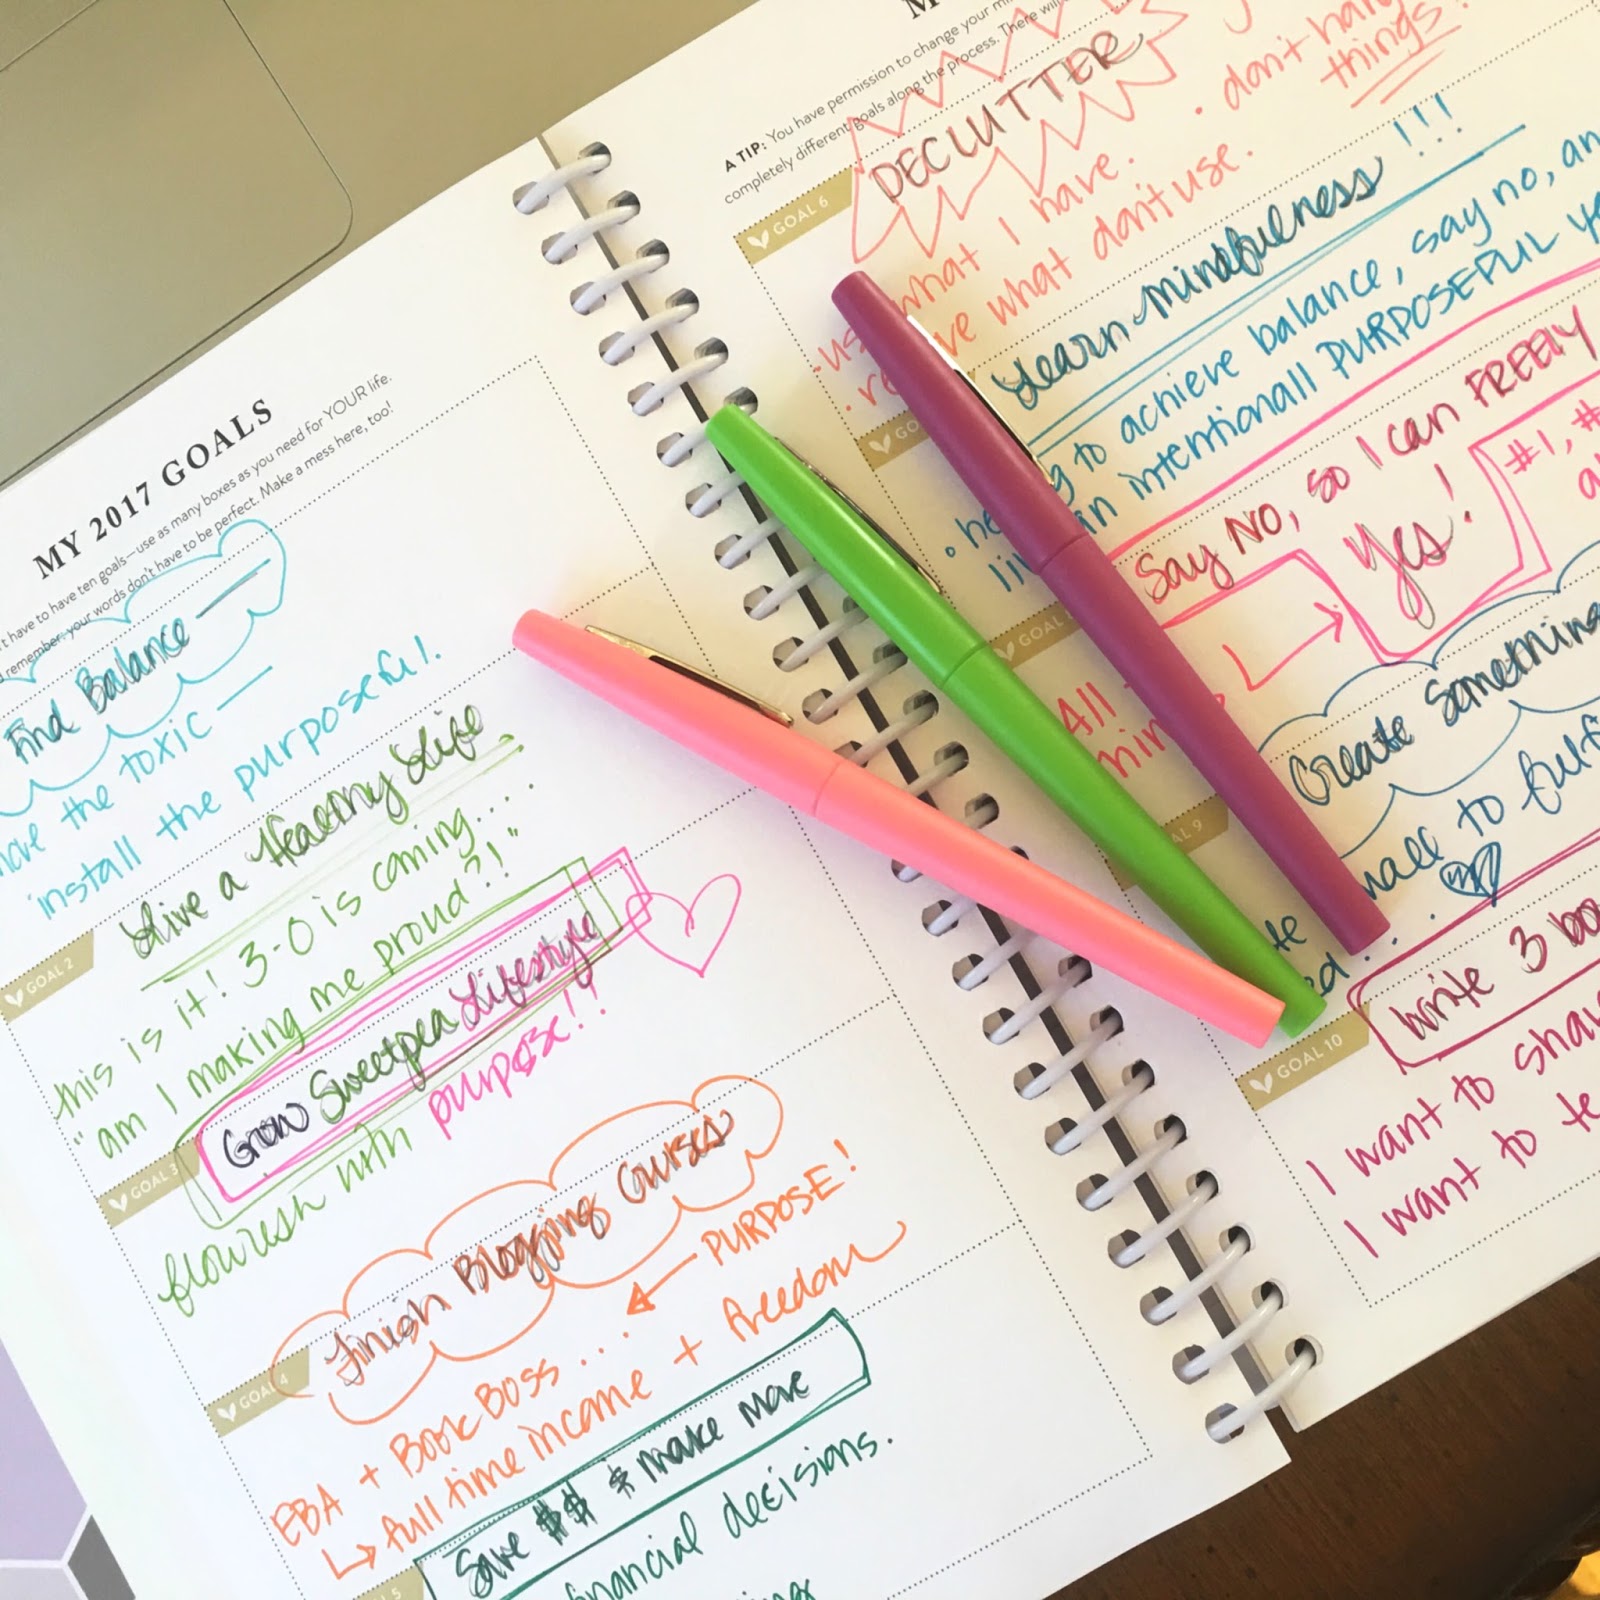 MY 2017 GOALS
't have to have ten goals—use as many boxes as you need for YOUR life.
remember: your words don't have to be perfect. Make a mess here, too!
Find Balance
the toxic
install the purposeful.
GOAL 2
Live a Healthy Life
this is it! 3-0 is coming....
"am I making me proud?!"
GOAL 3
Grow Sweetpea Lifestyle
flourish with purpose!!
GOAL 4
Finish Blogging Courses
PURPOSE!
EBA + Book Boss...
full time income + freedom
5
Save $$$ & make more
financial decisions.
M
A TIP: You have permission to change your
completely different goals along the process. There will
GOAL 6
DECLUTTER
what I have.
what don't use.
don't
things!
Learn Mindfulness!!!
to achieve balance, say no, an
an intentionall PURPOSEFUL
Say NO, so I can FREELY
Yes!
#1, #
All
Create Something
to
GOAL 9
GOAL 10
Write 3 bo
I want to
I want to te